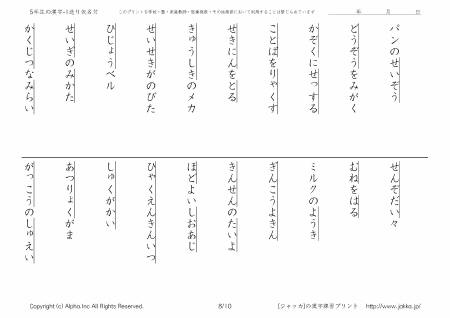 5年生の漢字+1送り仮名付
このプリントを学校・塾・家庭教師・医療機関・その他施設において利用することは禁じられています
年　月　日
パンのせいぞう
どうぞうをみがく
かぞくにせっする
ことばをりゃくす
せきにんをとる
きゅうしきのメカ
せいせきがのびた
ひじょうベル
せいぎのみかた
かくじつなみらい
せんぞだい々
むねをはる
ミルクのようき
ぎんこうよきん
きんせんのたいよ
ほどよいしおあじ
ひゃくえんきんいつ
しゅくがかい
あつりょくがま
がっこうのしゅえい
Copyright (c) Alpha.Inc All Rights Reserved.
8/10
[ジャッカ]の漢字練習プリント　http://www.jakka.jp/